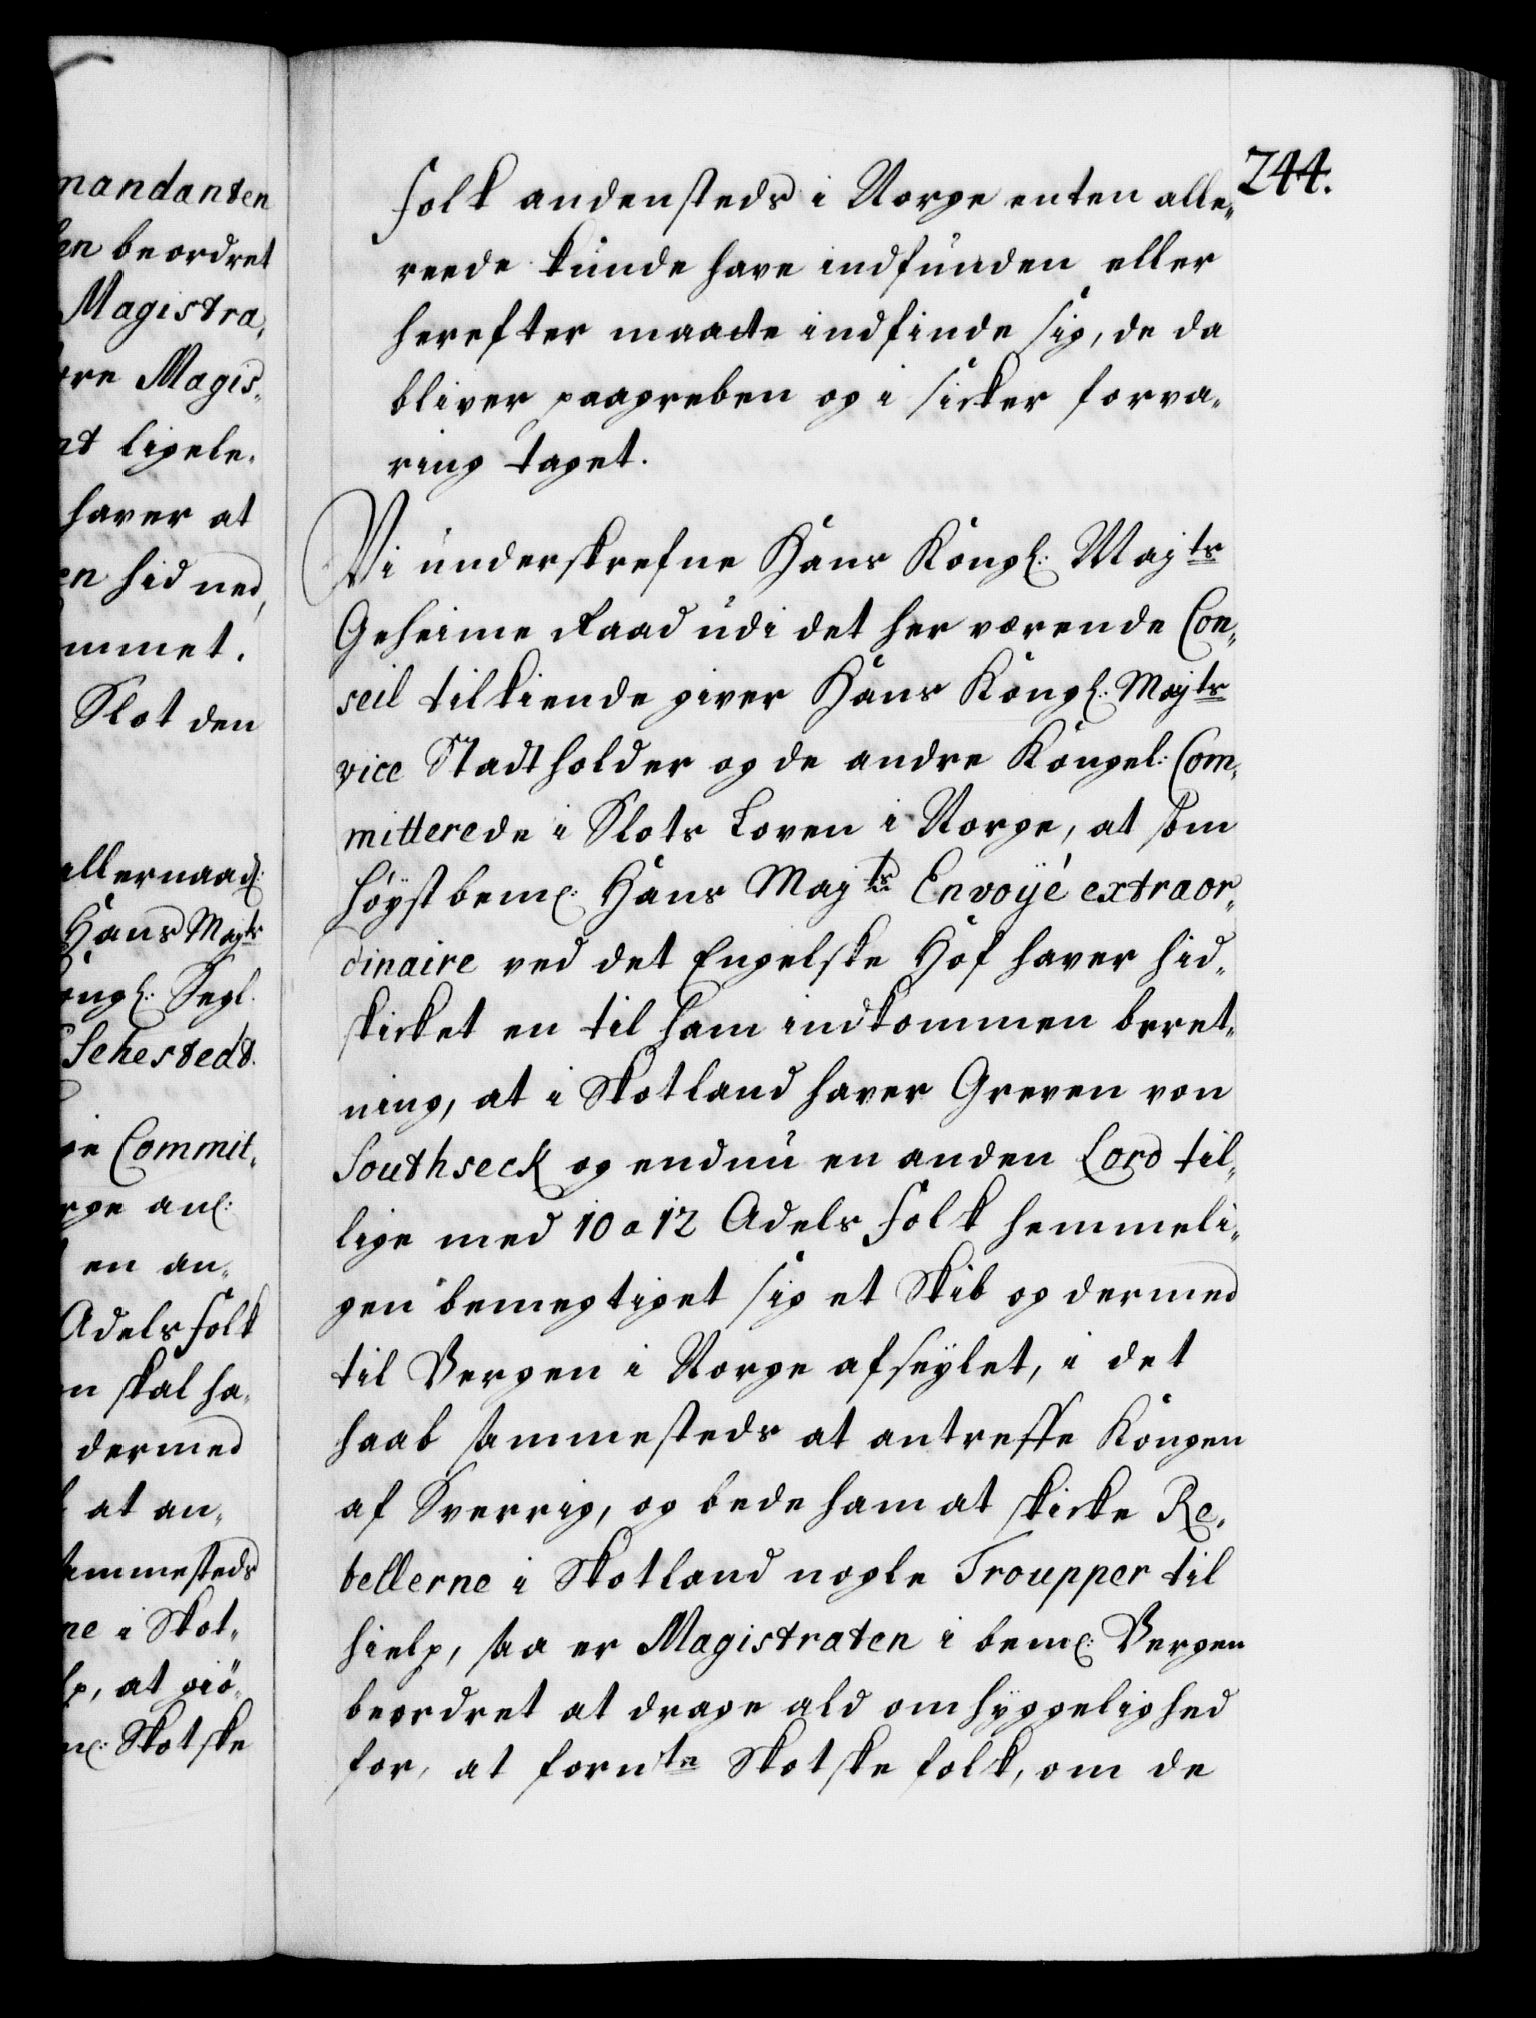 mandanten
en beordret
Magistra„
re Magis„
nt ligele„
haver at
en hid ned,
mmet.
Slot den
allernaad:
Hans Majts
Kongl: Segl.
Sehestedt.
ge Commit„
rge anl:
en an„
Adels folk
n skal ha„
dermed
at an„
ammesteds
ne i Skot„
lp, at giö„
m: Skotske
244.
folk andensteds i Norge enten alle„
reede kunde have indfunden eller
herefter maatte indfinde sig, de da
bliver paagreben og i sicker forva„
ring taget.
Vi underskrefne Hans Kongl: Majts
Geheime Raad udi det her værende Con„
seil tilkiende giver Hans Kongl: Majts
vice Stadtholder og de andre Kongel: Com„
mitterede i Slots Loven i Norge, at som
höystbem: Hans Majts Envoyé extraor„
dinaire ved det Engelske Hof haver hid„
skicket en til ham indkommen beret„
ning, at i Skotland haver Greven von
Southseck og endnu en anden Lord til„
lige med 10 a 12 Adels folk hemmeli„
gen bemegtiget sig et Skib og dermed
til Bergen i Norge afseylet, i det
haab sammesteds at antreffe Kongen
af Sverrig, og bede ham at skicke Re„
bellerne i Skotland nogle Troupper til
hielp, saa er Magistraten i bem: Bergen
beordret at drage ald omhyggelighed
for, at fornte Skotske folk, om de